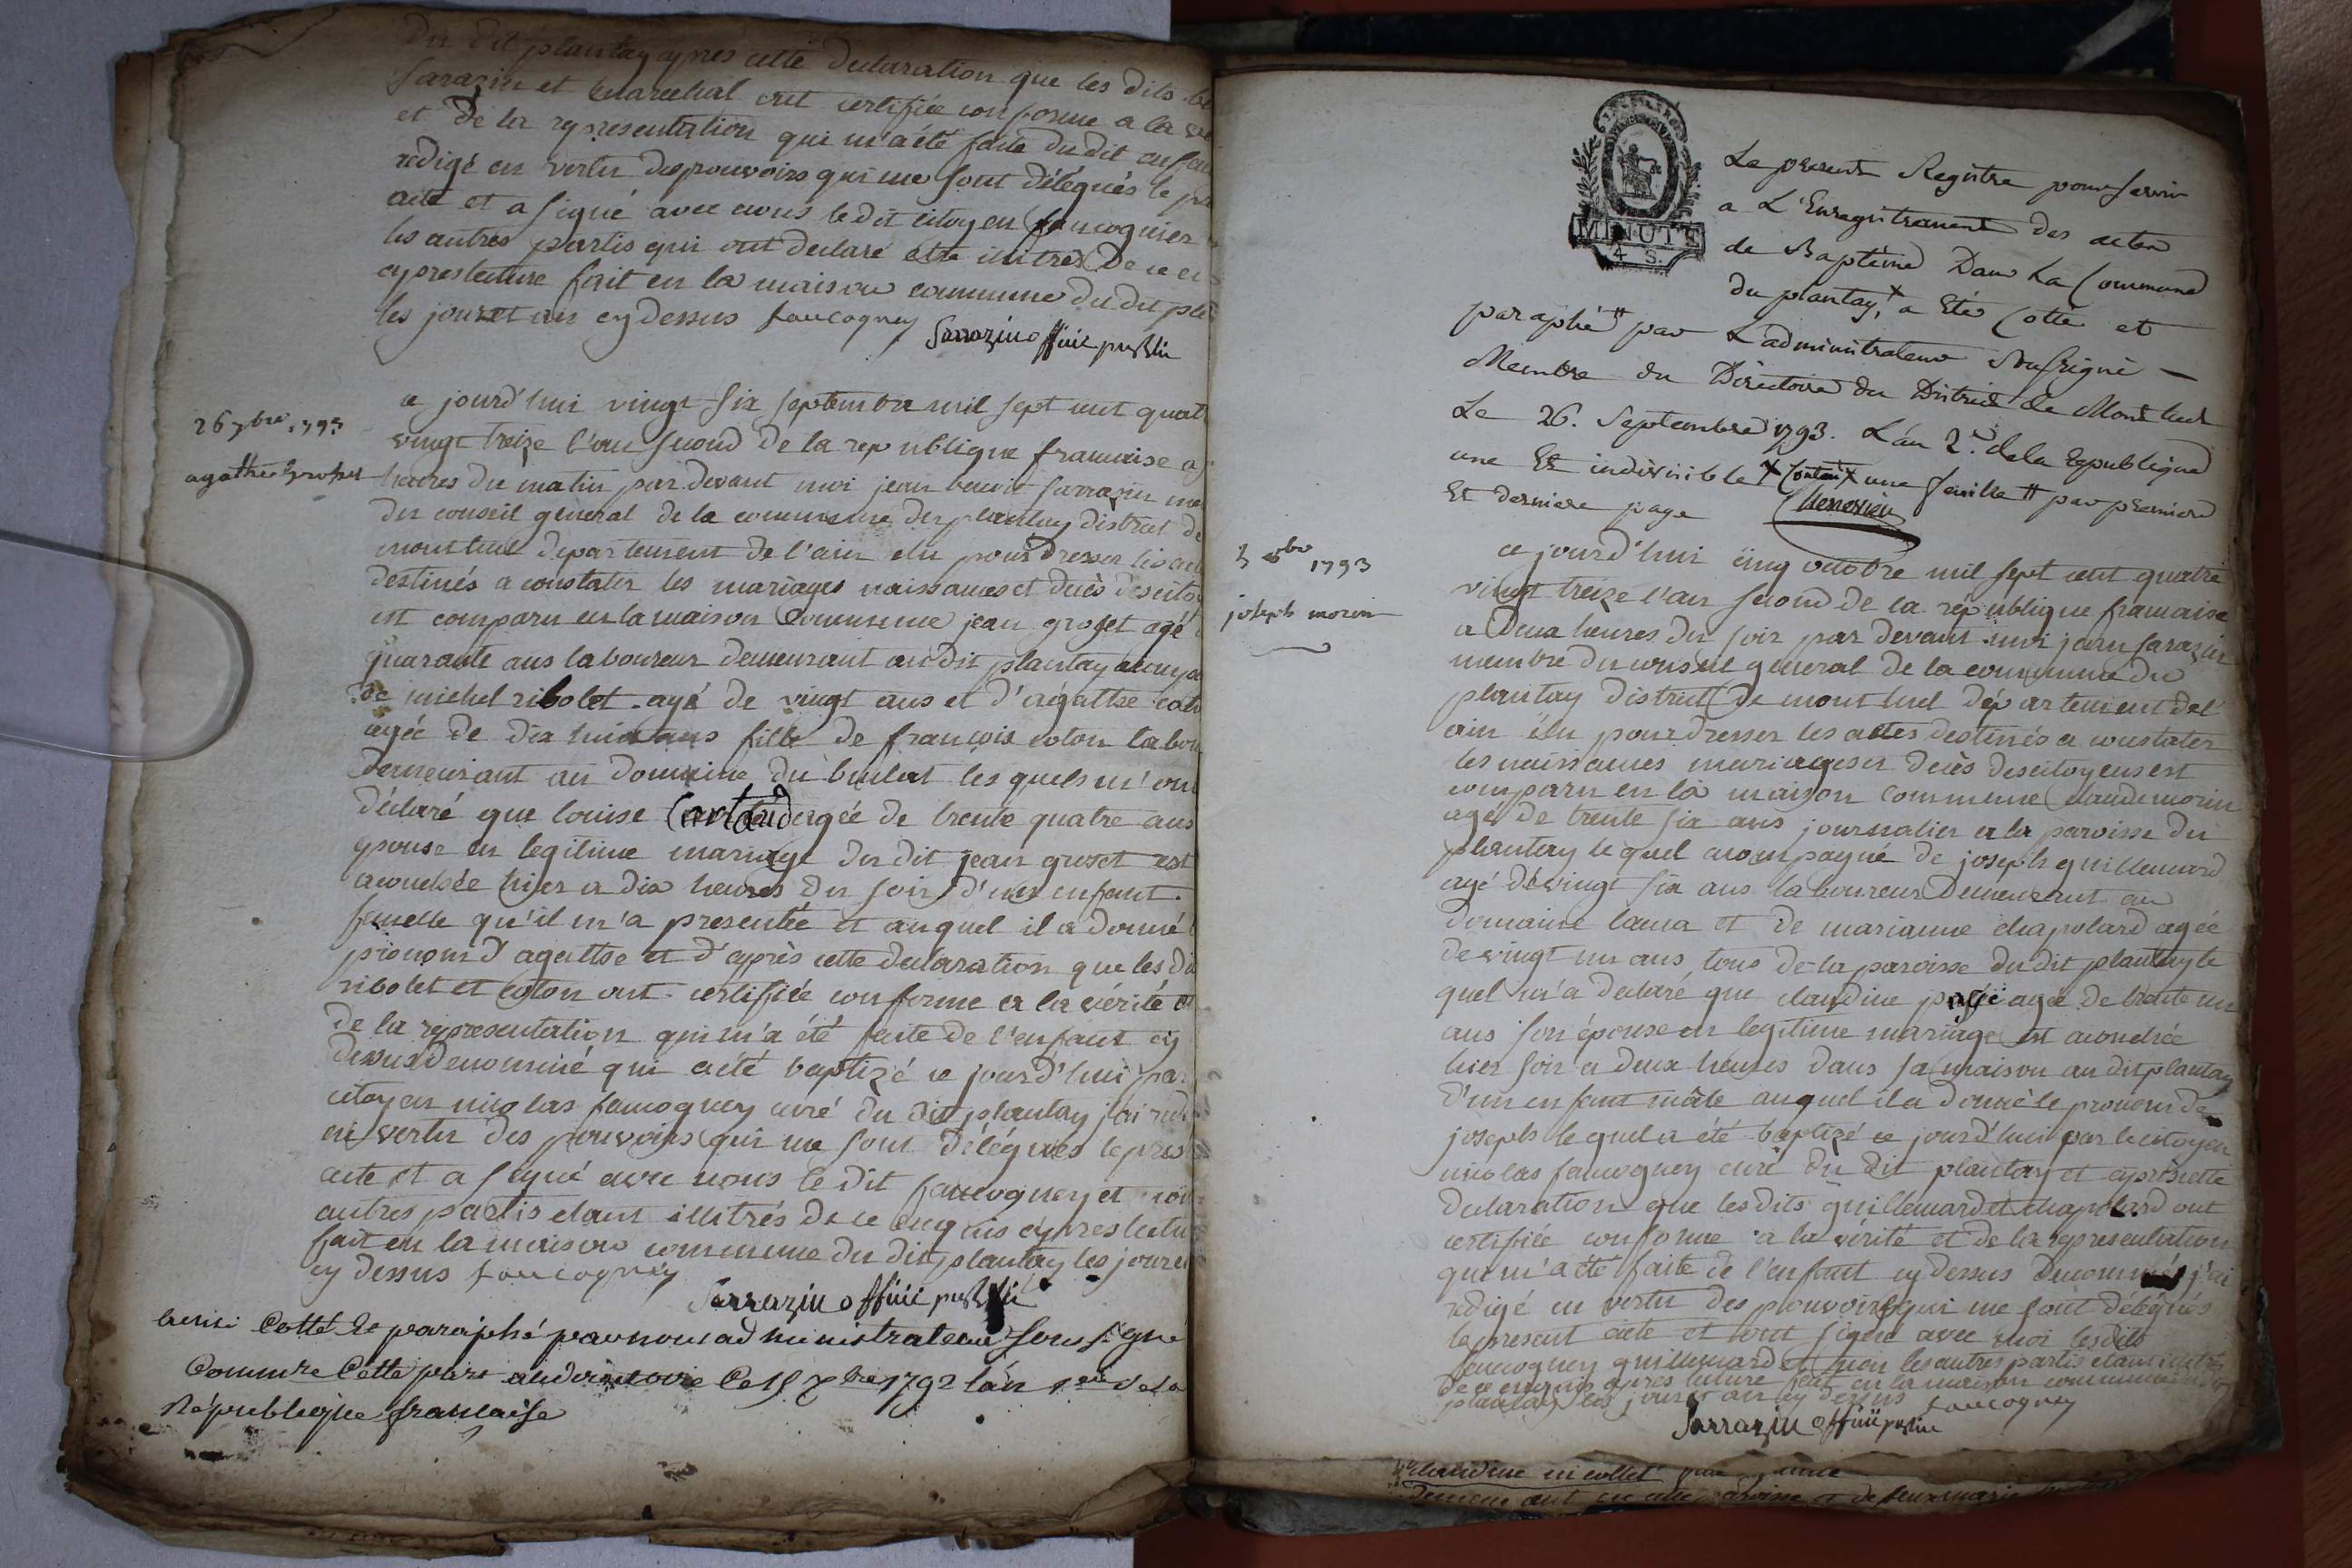 du dit plantay apres cette declaration que les dits
Sarazin et marechal ont certifiée conforme a la
et de la representation qui m'a été faite du dit enfan
redigé en vertu des pouvoirs qui me sont délégués le
acte et a signé avec nous le dit citoyen faucogney
les autres partis qui ont declaré etre illitrés de ce
apres lecture fait en la maison commune du dit pla
les jour et an cy dessus faucogney
Sarrazin offiié publiu
26 7bre 1793
agathe groset
a jourd'hui vingt six septembre mil sept cent quat
vingt treize l'an second de la republique francaise a
heures du matin par devant moi jean benoit sarrazin me
du conseil general de la commune du plantay district de
montluel departement de l'ain elu pour dresser les
destinés a constater les mariages naissances et decès des cito
est comparu en la maison commune jean groset agé
quarante ans laboureur demeurant au dit plantay
de michel ribolet agé de vingt ans et d'agathe
agée de dix huit ans fille de françois colon labou
demeurant au domaine du les quels m'ont
déclaré que louise agée de trente quatre ans
epouse en legitime mariage du dit jean groset est
acouchée hier a dix heures du soir d'un enfant
femelle qu'il m'a presentée et auquel il a donné
prenom d'agathe et d'apres cette declaration que les di
ribolet et colon ont certifiée conforme a la vérité et
de la representation qui m'a été faite de l'enfant cy
dessus denommé qui a été baptizé ce jourd'hui par
citoyen nicolas faucogney curé du dit plantay j'ai
en vertu des pouvoirs qui me sont délégués le pres
acte et a signé avec nous le dit faucogney et
autres partis etant illitrés de ce enquis apres lectu
fait en la maison commune du dit plantay les jour e
cy dessus faucogney
Sarrazin offiié publiu
Cotté et paraphé par nous administrateur soussigné
Comme Cette piece au directoire Ce 15 Xbre 1792 l'an 1er de la
République francaise
MINUTE
4 S.
Le present Registre pour servir
a L'Enregistrement des actes
de Baptème Dans La Commune
du plantay, a Eté Cotté et
paraphé par L'administrateur Soussigné
Membre du Directoire du District de Montluel
Le 26. Septembre 1793. L'an 2d. de la Republique
une Et indivisible contenant une feuille par premiere
Et derniere page
5 8bre 1793
joseph morin
ce jourd'hui cinq octobre mil sept cent quatre
vingt treize l'an second de la république francaise
a deux heures du soir par devant moi jean sarazin
membre du conseil general de la commune du
plantay district de montluel département de l'
ain élu pour dresser les actes destinés a constater
les naissances mariages et decès des citoyens est
comparu en la maison commune claude morin
agé de trente six ans journalier a la paroisse du
plantay le quel acompagné de joseph guillemard
agé de vingt six ans laboureur demeurant au
domaine et de marianne chapolard agée
de vingt un ans tous de la paroisse du dit plantay le
quel m'a declaré que claudine agée de trente un
ans son épouse en legitime mariage est acouchée
hier soir a deux heures dans sa maison au dit plantay
d'un enfant mâle auquel il a donné le prenom de
joseph le quel a été baptizé ce jourd'hui par le citoyen
nicolas faucogney curé du dit plantay et apres cette
declaration que les dits guillemard et chapolard ont
certifiée conforme a la vérité et de la representation
qui m'a été faite de l'enfant cy dessus denommé j'ai
redigé en vertu des pouvoirs qui me sont délégués
le present acte et ont signé avec moi les dits
faucogney guillemard et non les autres partis etant illitrés
de ce enquis apres lecture fait en la maison commune du dit
plantay les jour et an cy dessus faucogney
Sarrazin offiié publiu
claudine nicollet